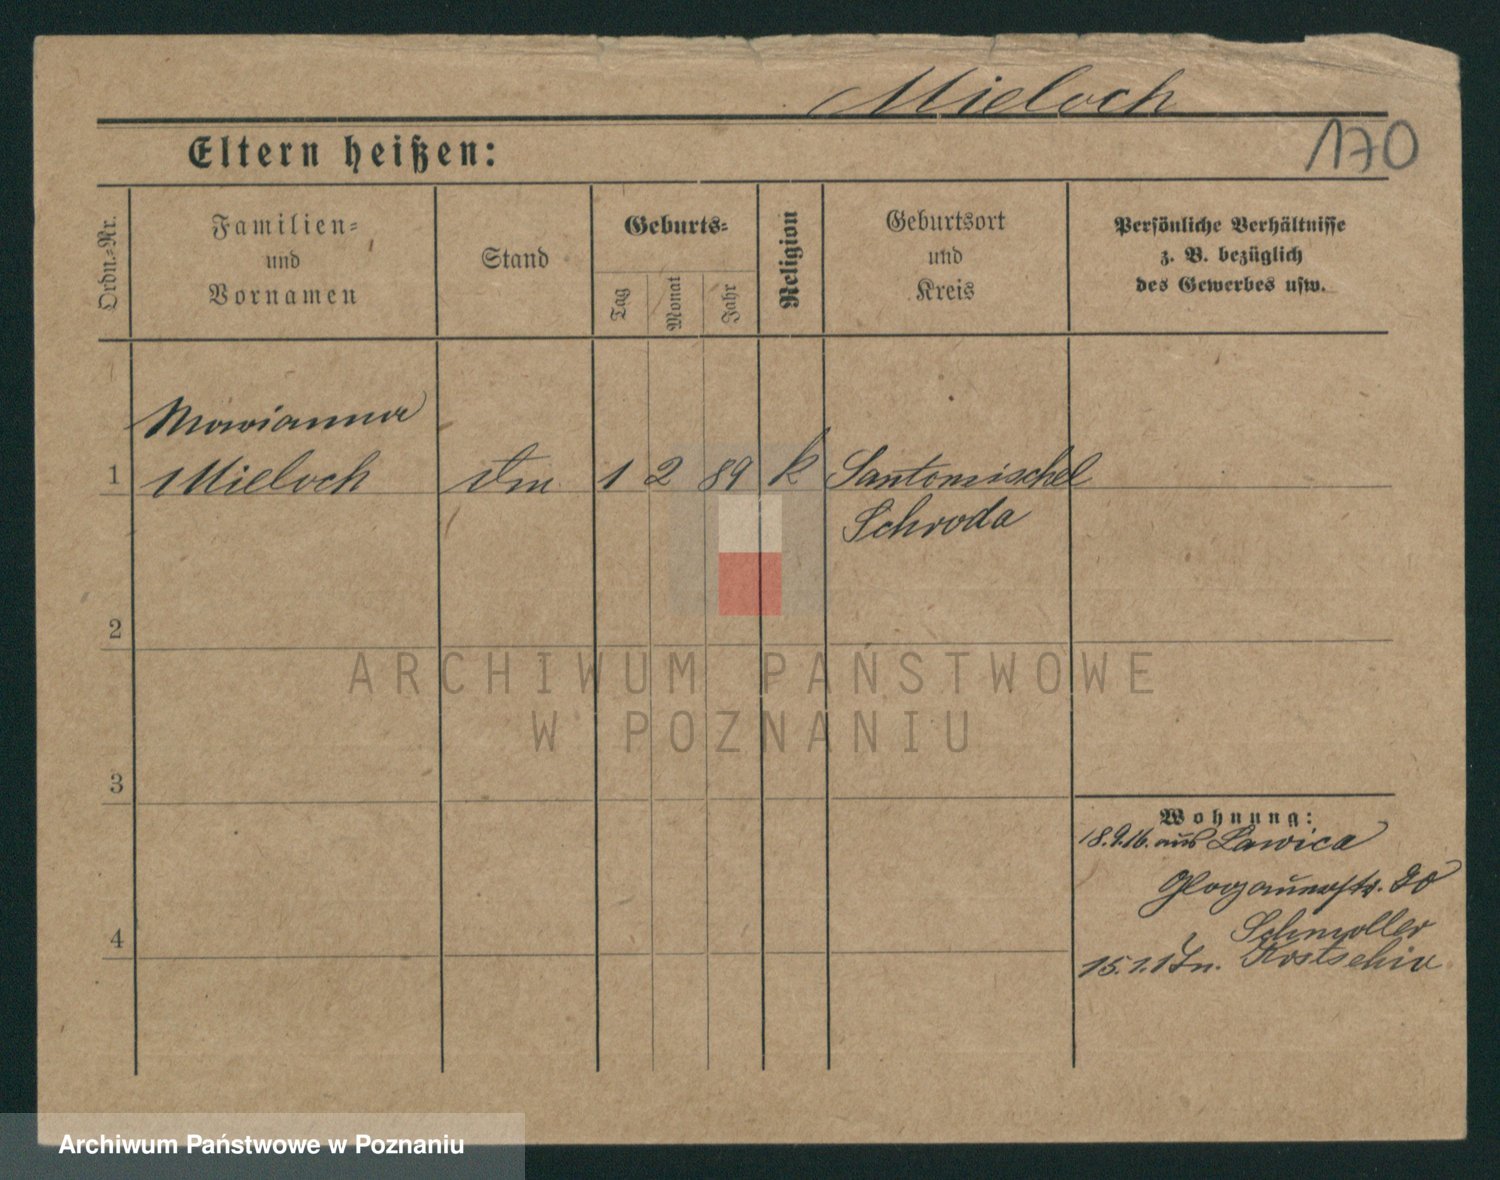 Mieloch
170
Eltern heißen:
Ordn.-Nr.
Familien-
und
Vornamen
Stand
Geburts-
Tag
Monat
Jahr
Religion
Geburtsort
und
Kreis
Persönliche Verhältnisse
z. B. bezüglich
des Gewerbes usw.
Marianna
1 Mieloch 1 2 89 k Santomischel
Schroda
2
ARCHIWUM PAŃSTWOWE
W POZNANIU
3
Wohnung:
18.9.16. aus Lawica
Glogauerstr. 20
Schmoller
4
15.1.17 n. Kostschin
Archiwum Państwowe w Poznaniu